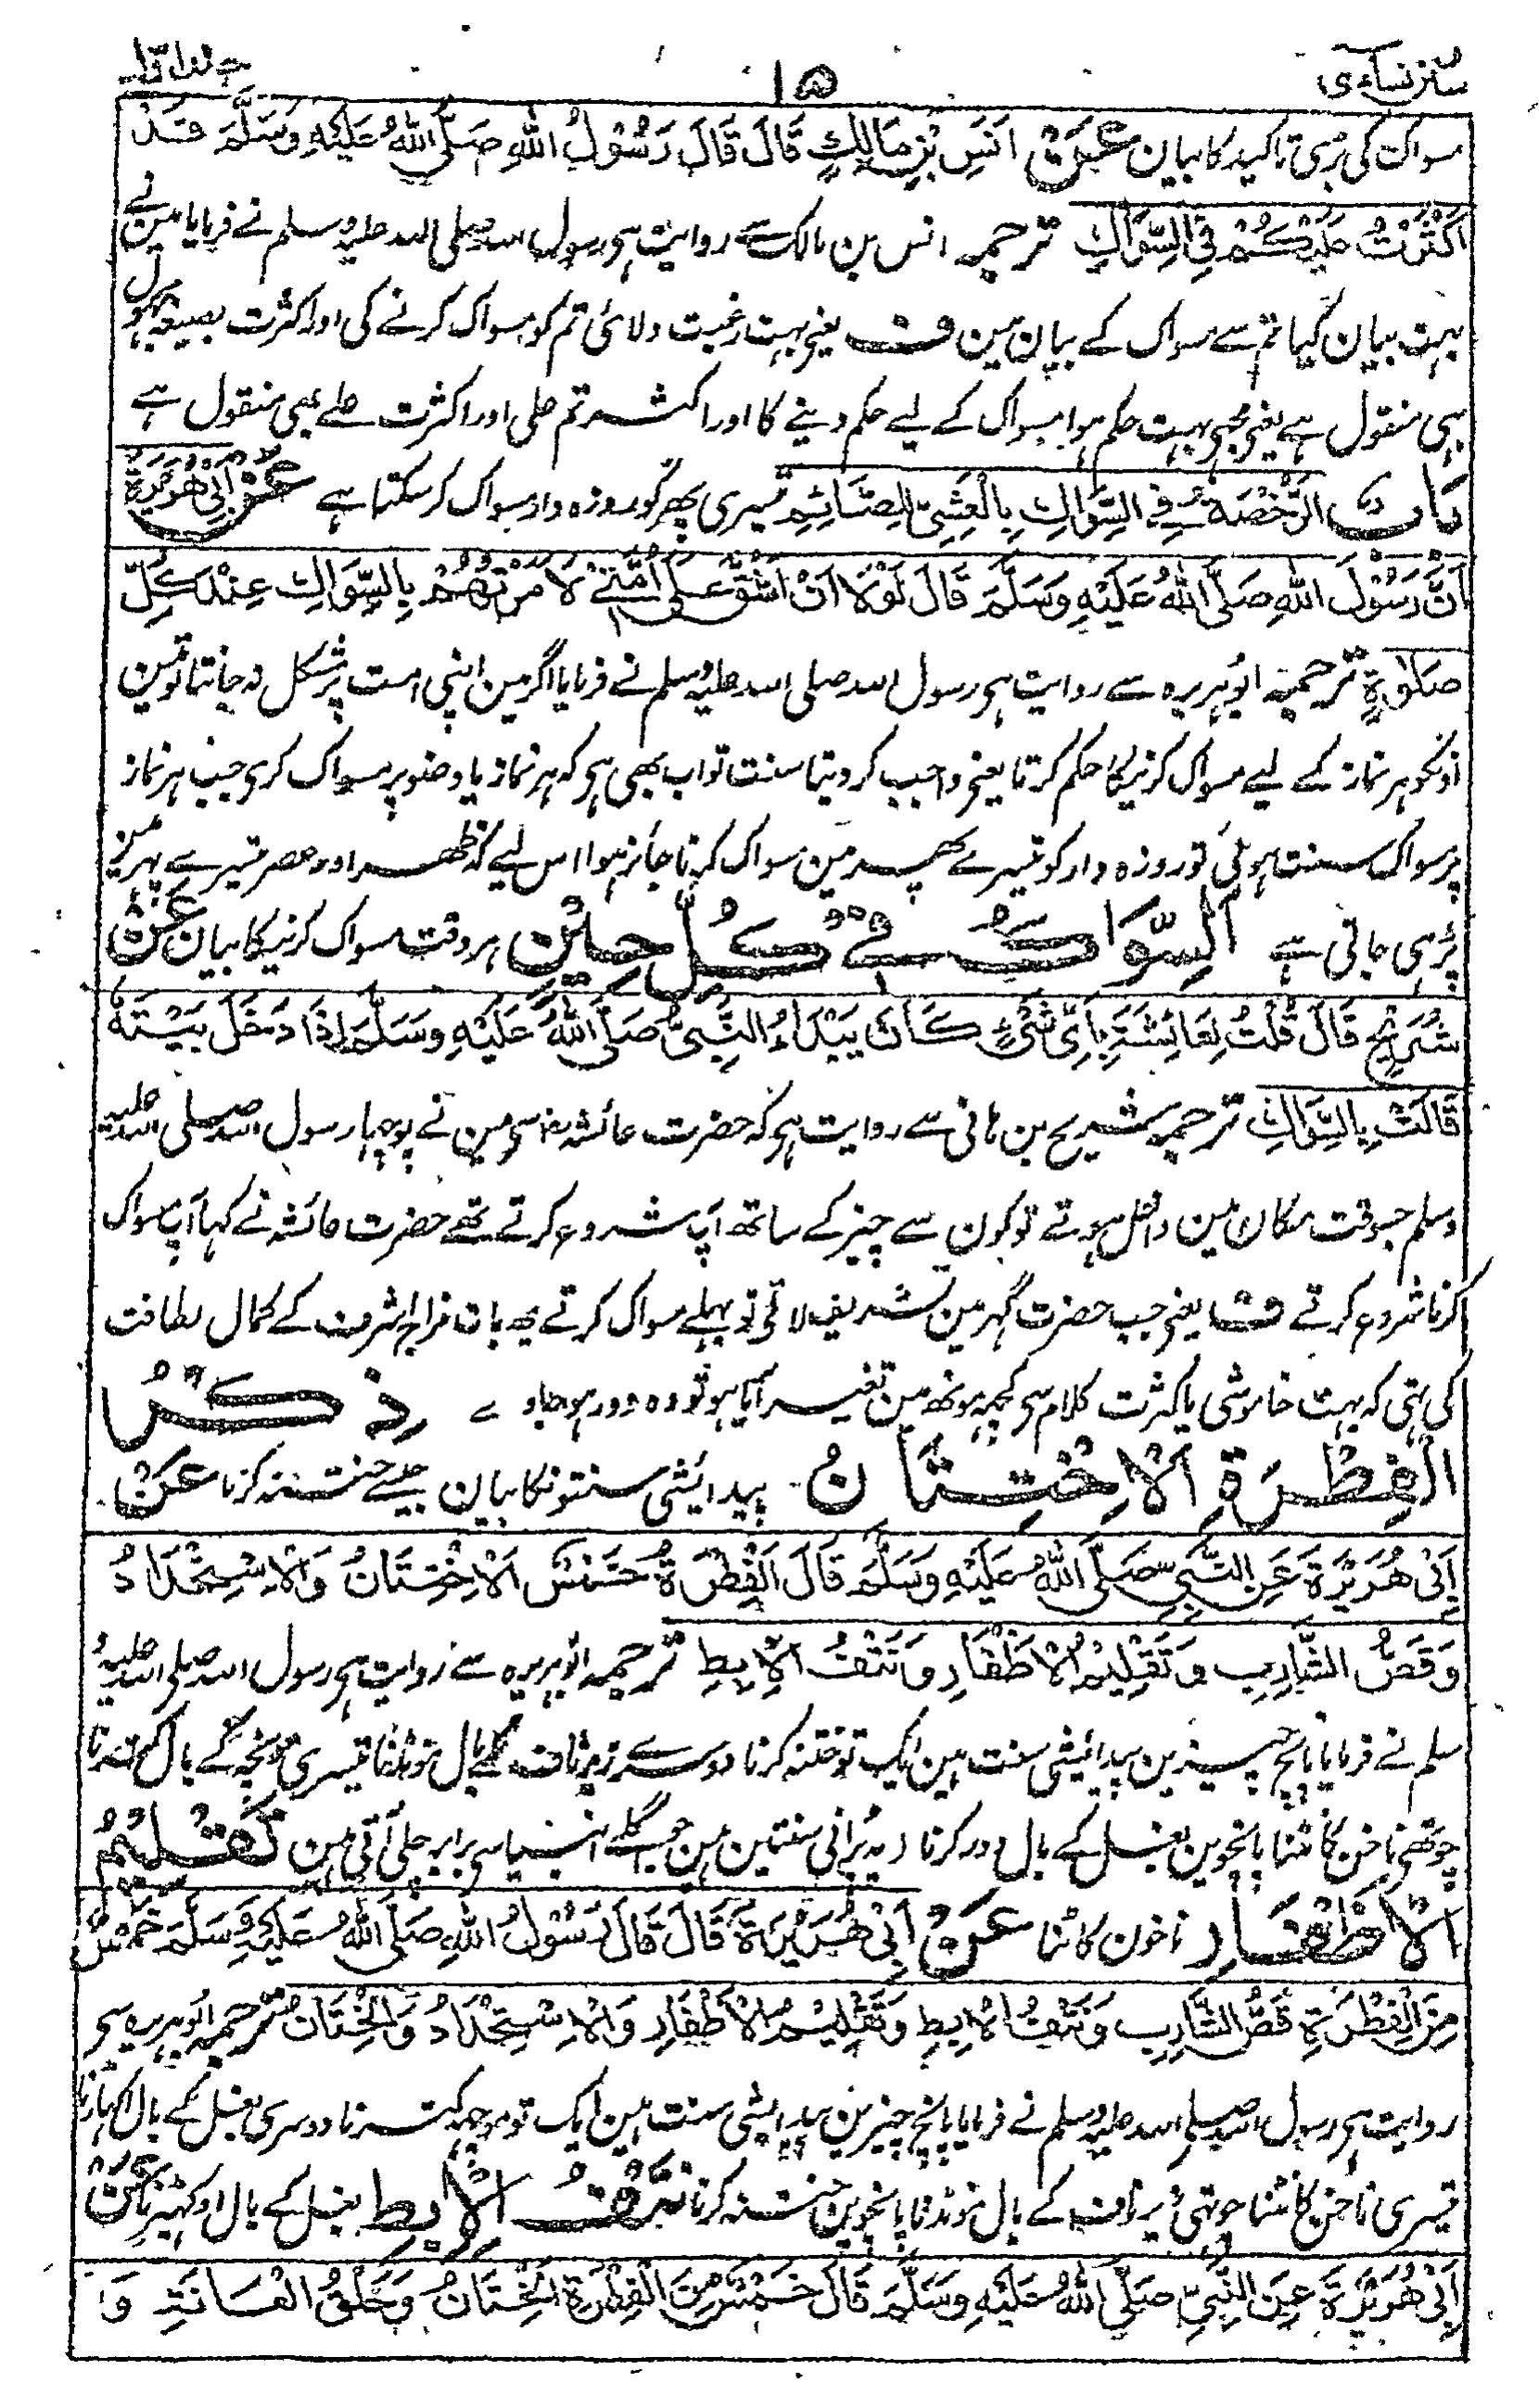 سنن نسائی ۱۵ جلد اول
مسواک کی بڑی تاکید کا بیان عَنْ اَنَسِ بْنِ مَالِكٍ قَالَ قَالَ رَسُوْلُ اللّٰهِ صَلَّى اللّٰهُ عَلَيْهِ وَسَلَّمَ قَدْ
اَكْثَرْتُ عَلَيْكُمْ فِي السِّوَاكِ ترجمہ انس بن مالک سے روایت ہی رسول اللہ صلی اللہ علیہ وسلم نے فرمایا مین نے
بہت بیان کیا تم سے مسواک کے بیان مین ف یعنی بہت رغبت دلائی تم کو مسواک کرنے کی اور اکثرت بصیغہ مجہول
بہی منقول ہے یعنی مجہی بہت حکم ہوا مسواک کے لیے حکم دینے کا اور اکثرتم علی اور اکثرت علے بھی منقول ہے
بَابُ الرُّخْصَةِ فِي السِّوَاكِ بِالْعَشِيِّ لِلصَّائِمِ تیسری پھر کو روزہ دار مسواک کر سکتا ہے عَنْ اَبِيْ هُرَيْرَةَ
اَنَّ رَسُوْلَ اللّٰهِ صَلَّى اللّٰهُ عَلَيْهِ وَسَلَّمَ قَالَ لَوْلَا اَنْ اَشُقَّ عَلٰى اُمَّتِيْ لَاَمَرْتُهُمْ بِالسِّوَاكِ عِنْدَ كُلِّ
صَلٰوةٍ ترجمہ ابو ہریرہ سے روایت ہی رسول اللہ صلی اللہ علیہ وسلم نے فرمایا اگر مین اپنی امت پر مشکل نہ جانتا تو مین
اونکو ہر نماز کے لیے مسواک کرنیکا حکم کرتا یعنی واجب کر دیتا سنت تو اب بھی ہی کہ ہر نماز یا وضو پر مسواک کری جب ہر نماز
پر مسواک سنت ہوئی تو روزہ دار کو تیسرے پھر مین مسواک کرنا جائز ہوا اس لیے کہ ظہر اور عصر تیسرے پہر مین
پڑہی جاتی ہے اَلسِّوَاكُ فِيْ كُلِّ حِيْنٍ ہر وقت مسواک کرنیکا بیان عَنْ
شُرَيْحٍ قَالَ قُلْتُ لِعَائِشَةَ بِاَيِّ شَيْءٍ كَانَ يَبْدَاُ النَّبِيُّ صَلَّى اللّٰهُ عَلَيْهِ وَسَلَّمَ اِذَا دَخَلَ بَيْتَهٗ
قَالَتْ بِالسِّوَاكِ ترجمہ شریح بن ہانی سے روایت ہی کہ حضرت عائشہ سی مین نے پوچہا رسول اللہ صلی اللہ علیہ
وسلم جسوقت مکان مین داخل ہوتے تو کون سے چیز کے ساتھ آپ شروع کرتے تھے حضرت عائشہ نے کہا آپ مسواک
کرنا شروع کرتے ف یعنی جب حضرت گہر مین تشریف لاتی تو پہلے مسواک کرتے یہ بات مزاج اشرف کے کمال لطافت
کی تہی کہ بہت خاموشی یا کثرت کلام سی کچہ مونھ مین تغیر آیا ہو تو وہ دور ہو جاوے ذِكْرُ
الْفِطْرَةِ الْاِخْتِتَانُ پیدایشی سنتونکا بیان جیسے ختنہ کرنا عَنْ
اَبِيْ هُرَيْرَةَ عَنِ النَّبِيِّ صَلَّى اللّٰهُ عَلَيْهِ وَسَلَّمَ قَالَ الْفِطْرَةُ خَمْسٌ اَلْاِخْتِتَانُ وَالْاِسْتِحْدَادُ
وَقَصُّ الشَّارِبِ وَتَقْلِيْمُ الْاَظْفَارِ وَنَتْفُ الْاِبِطِ ترجمہ ابو ہریرہ سے روایت ہی رسول اللہ صلی اللہ علیہ و
سلم نے فرمایا پانچ چیزین پیدائیشی سنت ہین ایک تو ختنہ کرنا دوسرے زیر ناف کے بال مونڈنا تیسری مونچھ کے بال کترنا
چوتھی ناخن کاٹنا پانچوین بغل کے بال دور کرنا ۔ یہ پرانی سنتین ہین جو اگلے انبیا سی برابر چلی آتی ہین تَقْلِيْمُ
الْاَظْفَارِ ناخون کاٹنا عَنْ اَبِيْ هُرَيْرَةَ قَالَ قَالَ رَسُوْلُ اللّٰهِ صَلَّى اللّٰهُ عَلَيْهِ وَسَلَّمَ خَمْسٌ
مِنَ الْفِطْرَةِ قَصُّ الشَّارِبِ وَنَتْفُ الْاِبِطِ وَتَقْلِيْمُ الْاَظْفَارِ وَالْاِسْتِحْدَادُ وَالْخِتَانُ ترجمہ ابو ہریرہ سی
روایت ہی رسول اللہ صلی اللہ علیہ وسلم نے فرمایا پانچ چیزین پیدایشی سنت ہین ایک تو موچہ کترنا دوسری بغل کے بال اکہاڑنا
تیسری ناخن کاٹنا چوتہی زیر ناف کے بال مونڈنا پانچوین ختنہ کرنا نَتْفُ الْاِبِطِ بغل کے بال اوکھیڑنا عَنْ
اَبِيْ هُرَيْرَةَ عَنِ النَّبِيِّ صَلَّى اللّٰهُ عَلَيْهِ وَسَلَّمَ قَالَ خَمْسٌ مِنَ الْفِطْرَةِ الْخِتَانُ وَحَلْقُ الْعَانَةِ وَ